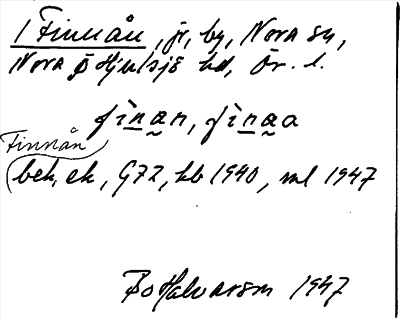 1 Finnån, jr, by, Nora sn,
Nora o Hjulsjö bd, Ör. l.
fìnan, fìnaa
Finnån
bek, ek, G72, kb 1940, ml 1947
Bo Halvarson 1947